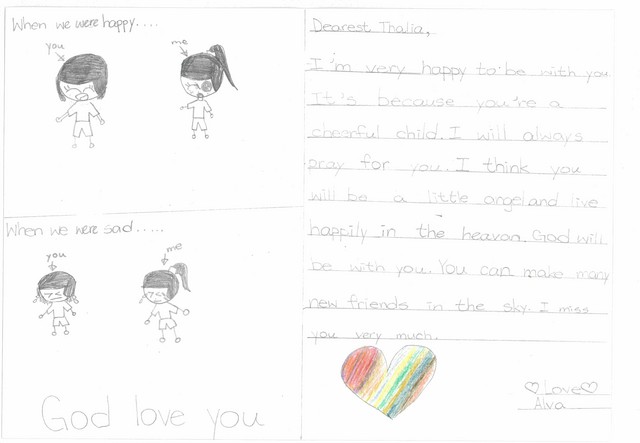 When we were happy.....
you
me
When we were sad.....
you
me
God love you
Dearest Thalia,
I'm very happy to be with you
It's because you're a
cheerful child. I will always
pray for you. I think you
will be a little angel and live
happily in the heavon. God will
be with you. You can make many
new friends in the sky. I miss
you very much.
♡ Love ♡
Alva